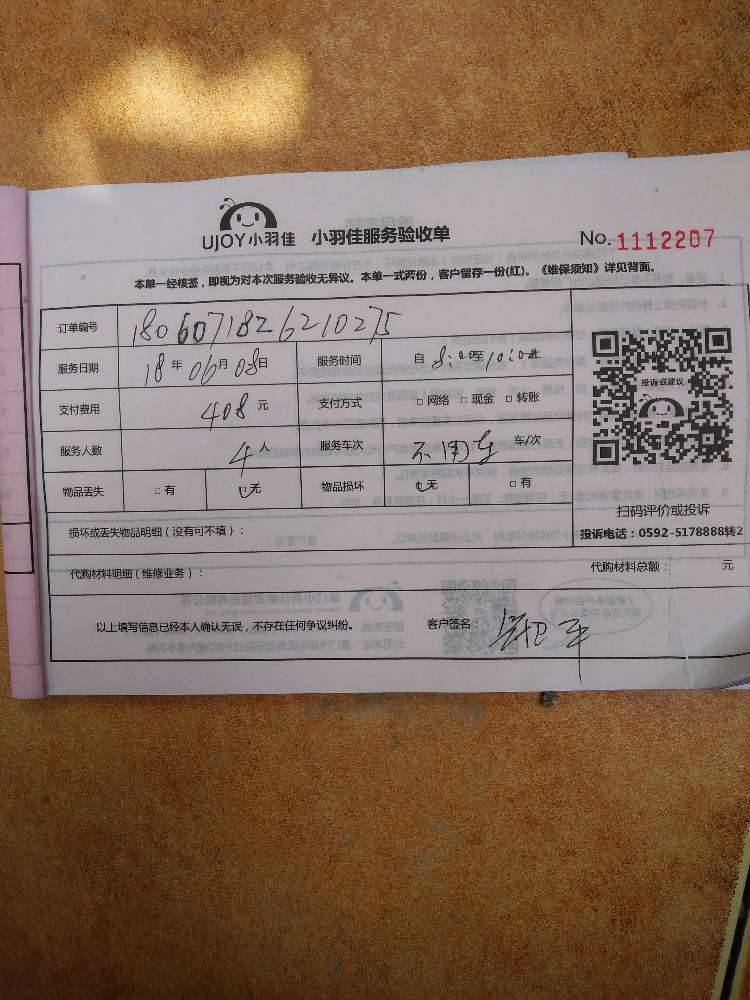 UJOY小羽佳 小羽佳服务验收单 No. 1112207
本单一经核签，即视为对本次服务验收无异议。本单一式两份，客户留存一份(红)。《维保须知》详见背面。
订单编号 1806071826210275
服务日期 18年06月08日 服务时间 自8:00至10:00止
支付费用 408元 支付方式 □网络 □现金 □转账
服务人数 4人 服务车次 不用车 车/次
物品丢失 □有 □无 物品损坏 □无 □有
投诉或建议
扫码评价或投诉
损坏或丢失物品明细（没有可不填）： 投诉电话：0592-5178888转2
代购材料明细（维修业务）： 代购材料总额： 元
以上填写信息已经本人确认无误，不存在任何争议纠纷。 客户签名：